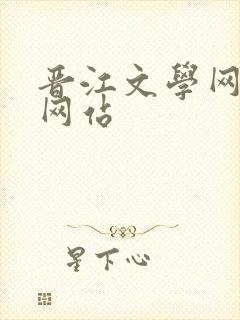 晋江文學网
网佔
星下心